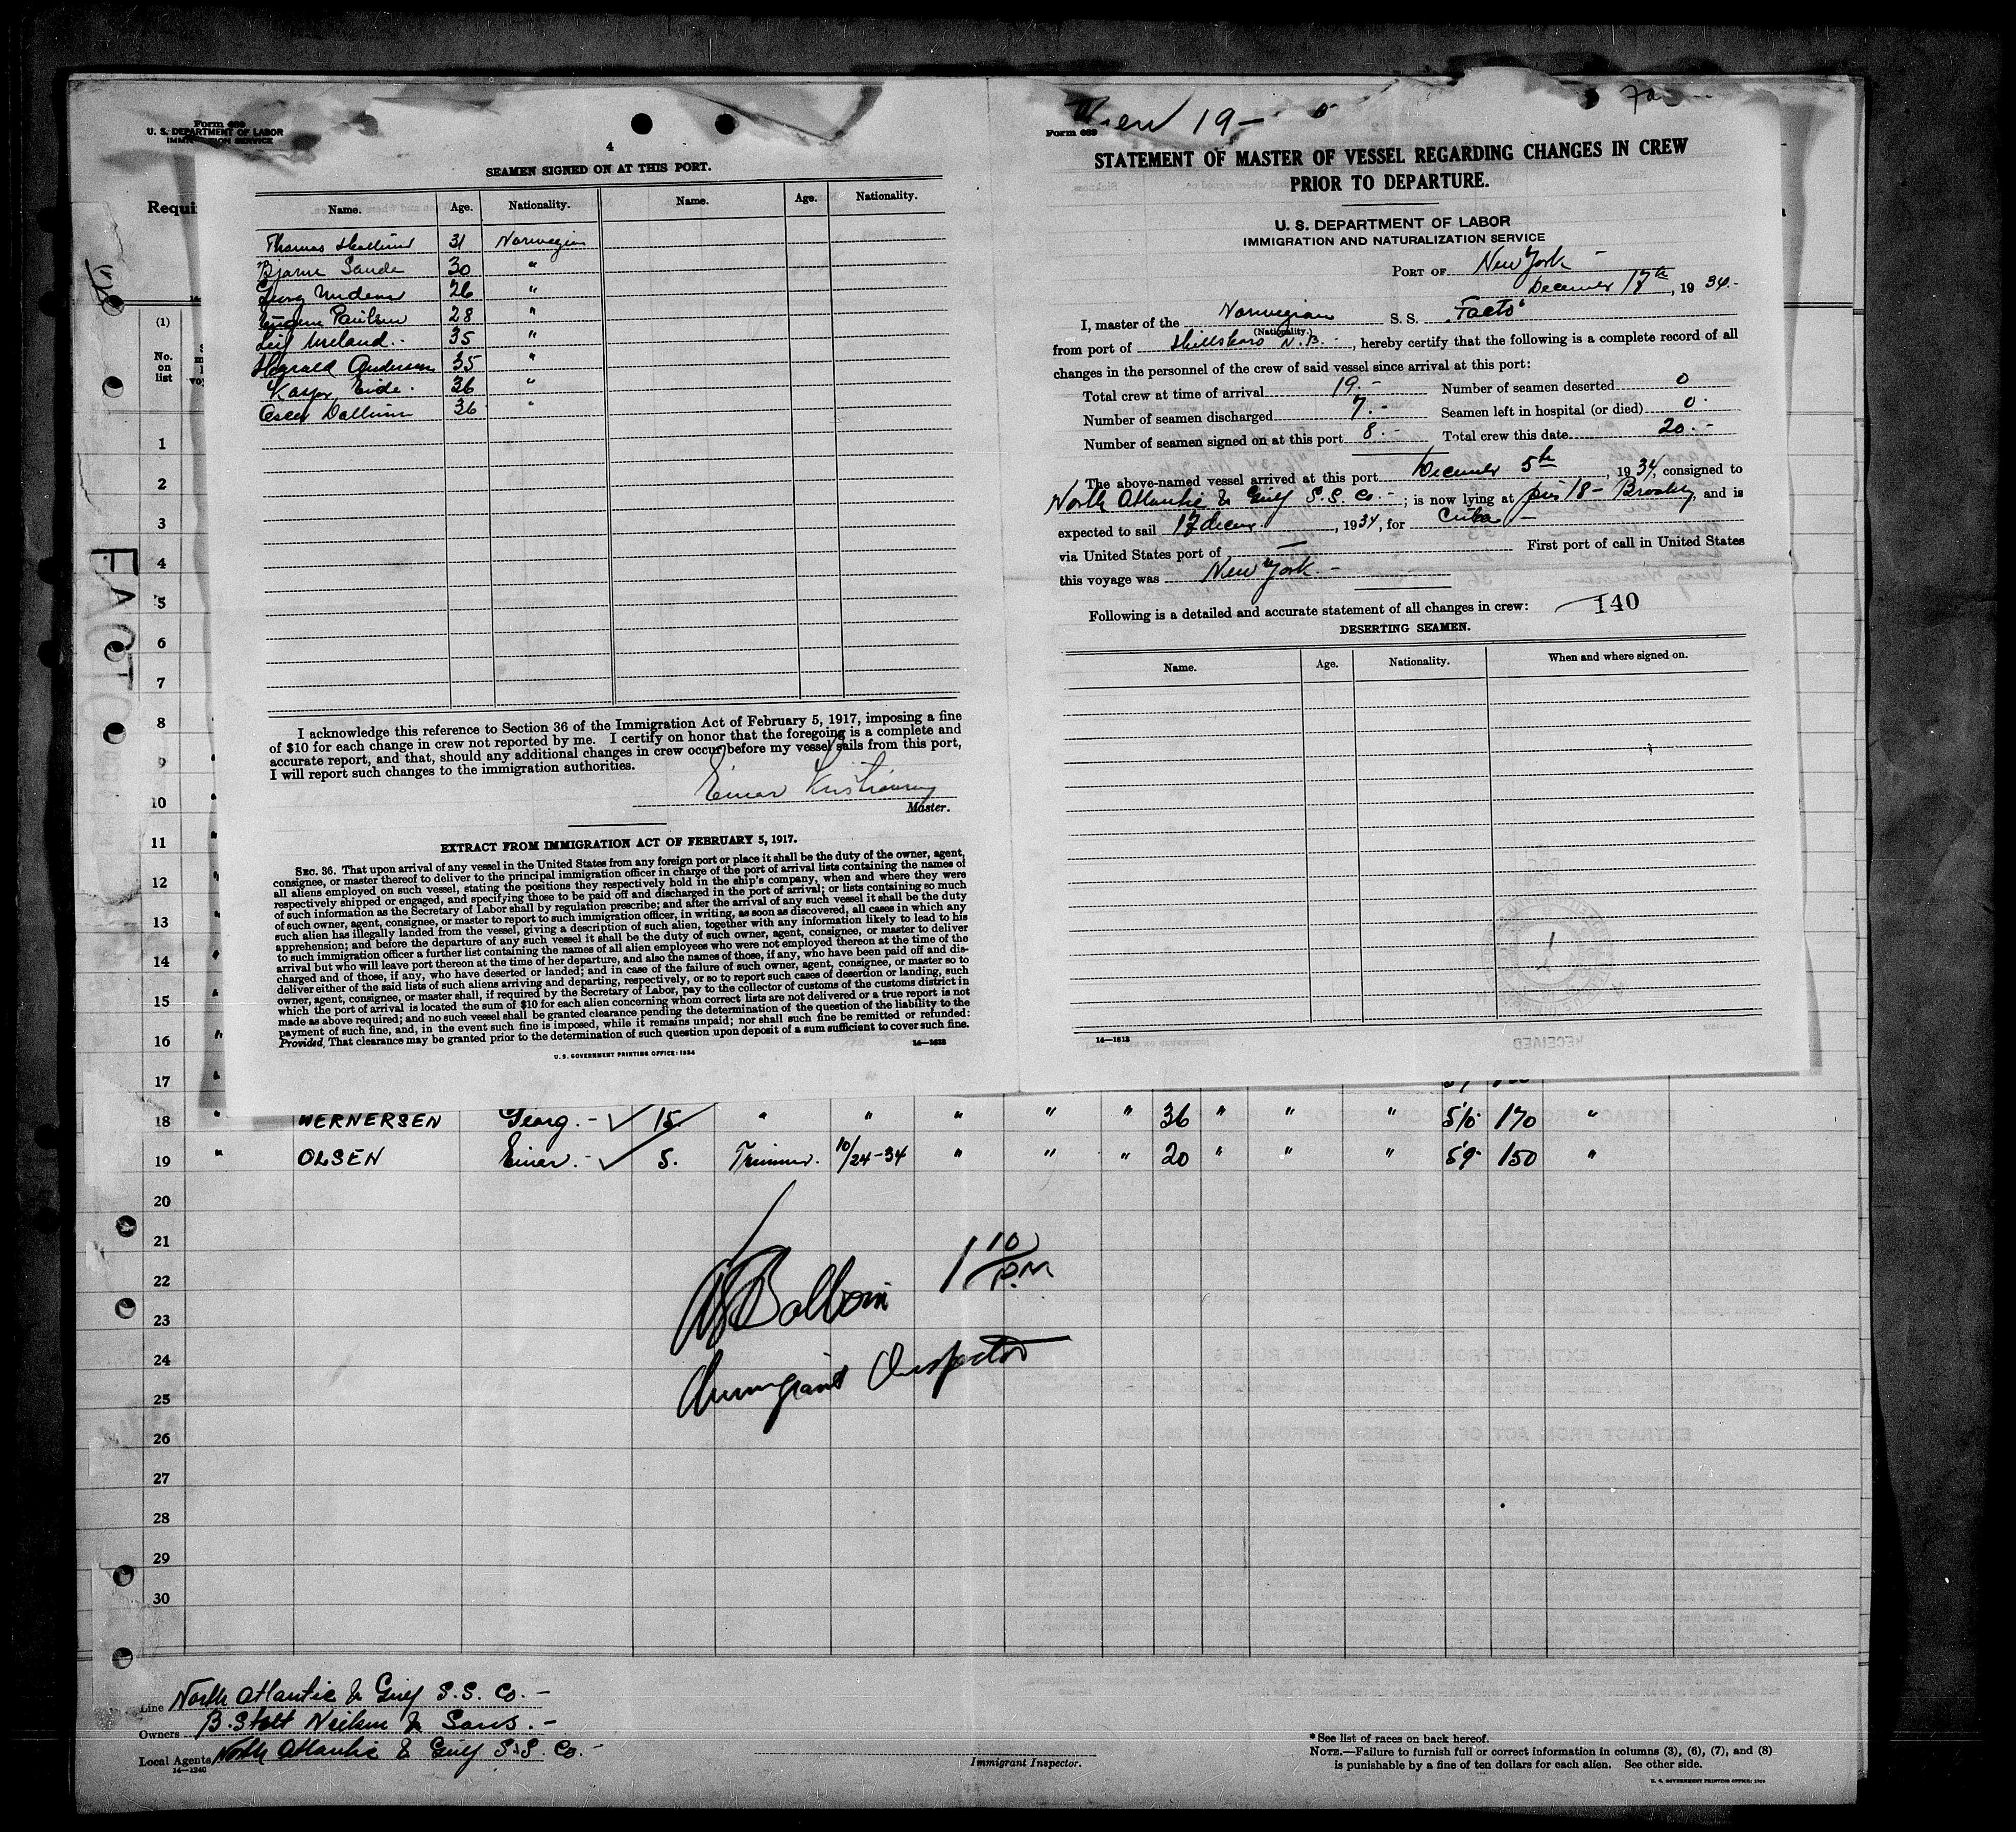 Form 689
U. S. DEPARTMENT OF LABOR
Requi
FACTO
(1)
No.
on
list
4
SEAMEN SIGNED ON AT THIS PORT.
Name. Age. Nationality. Name. Age. Nationality.
Thomas 31 Norwegian
Bjarne Sande 30 "
Georg 26 "
Eugene Paulsen 28 "
Leif 35 "
Harald Andersen 35 "
Kaspar Eide. 36 "
36 "
I acknowledge this reference to Section 36 of the Immigration Act of February 5, 1917, imposing a fine
of $10 for each change in crew not reported by me. I certify on honor that the foregoing is a complete and
accurate report, and that, should any additional changes in crew occur before my vessel sails from this port,
I will report such changes to the immigration authorities.
Einar
Master.
EXTRACT FROM IMMIGRATION ACT OF FEBRUARY 5, 1917.
SEC. 36. That upon arrival of any vessel in the United States from any foreign port or place it shall be the duty of the owner, agent,
consignee, or master thereof to deliver to the principal immigration officer in charge of the port of arrival lists containing the names of
all aliens employed on such vessel, stating the positions they respectively hold in the ship's company, when and where they were
respectively shipped or engaged, and specifying those to be paid off and discharged in the port of arrival; or lists containing so much
of such information as the Secretary of Labor shall by regulation prescribe; and after the arrival of any such vessel it shall be the duty
of such owner, agent, consignee, or master to report to such immigration officer, in writing, as soon as discovered, all cases in which any
such alien has illegally landed from the vessel, giving a description of such alien, together with any information likely to lead to his
apprehension; and before the departure of any such vessel it shall be the duty of such owner, agent, consignee, or master to deliver
to such immigration officer a further list containing the names of all alien employees who were not employed thereon at the time of the
arrival but who will leave port thereon at the time of her departure, and also the names of those, if any, who have been paid off and dis-
charged and of those, if any, who have deserted or landed; and in case of the failure of such owner, agent, consignee, or master so to
deliver either of the said lists of such aliens arriving and departing, respectively, or so to report such cases of desertion or landing, such
owner, agent, consignee, or master shall, if required by the Secretary of Labor, pay to the collector of customs of the customs district in
which the port of arrival is located the sum of $10 for each alien concerning whom correct lists are not delivered or a true report is not
made as above required; and no such vessel shall be granted clearance pending the determination of the question of the liability to the
payment of such fine, and, in the event such fine is imposed, while it remains unpaid; nor shall such fine be remitted or refunded:
Provided, That clearance may be granted prior to the determination of such question upon deposit of a sum sufficient to cover such fine.
U. S. GOVERNMENT PRINTING OFFICE: 1934
14—1613
19 —
Form 689
STATEMENT OF MASTER OF VESSEL REGARDING CHANGES IN CREW
PRIOR TO DEPARTURE.
U. S. DEPARTMENT OF LABOR
IMMIGRATION AND NATURALIZATION SERVICE
PORT OF New York —
December 17th, 1934.-
I, master of the Norwegian S. S. "Facto"
(Nationality.)
from port of Hillsboro N.B. -, hereby certify that the following is a complete record of all
changes in the personnel of the crew of said vessel since arrival at this port:
Total crew at time of arrival 19.- Number of seamen deserted 0
Number of seamen discharged 7.- Seamen left in hospital (or died) 0.
Number of seamen signed on at this port 8.- Total crew this date 20.-
The above-named vessel arrived at this port December 5th, 1934, consigned to
North Atlantic & Gulf S.S. Co. -; is now lying at pier 18 - , and is
expected to sail 17 , 1934, for Cuba -
via United States port of — First port of call in United States
this voyage was New York. -
Following is a detailed and accurate statement of all changes in crew: 140
DESERTING SEAMEN.
Name. Age. Nationality. When and where signed on.
14—1613
RECEIVED
1
2
3
4
5
6
7
8
9
10
11
12
13
14
15
16
17
18 " WERNERSEN Georg. - ✓ 15. " " " " " 36 " " " 5'10 170 "
19 " OLSEN Einar. - ✓ 5. Trimmer. 10/24-34 " " " 20 " " " 5'9 150 "
20
21
22
23
24
25
26
27
28
29
30
1 10 PM
Immigrant Inspector
Line North Atlantic & Gulf S.S. Co. -
Owners B. Stolt Nielsen & Sons. -
Local Agents North Atlantic & Gulf S.S. Co. -
14—1240
Immigrant Inspector.
* See list of races on back hereof.
NOTE.—Failure to furnish full or correct information in columns (3), (6), (7), and (8)
is punishable by a fine of ten dollars for each alien. See other side.
U. S. GOVERNMENT PRINTING OFFICE: 1929